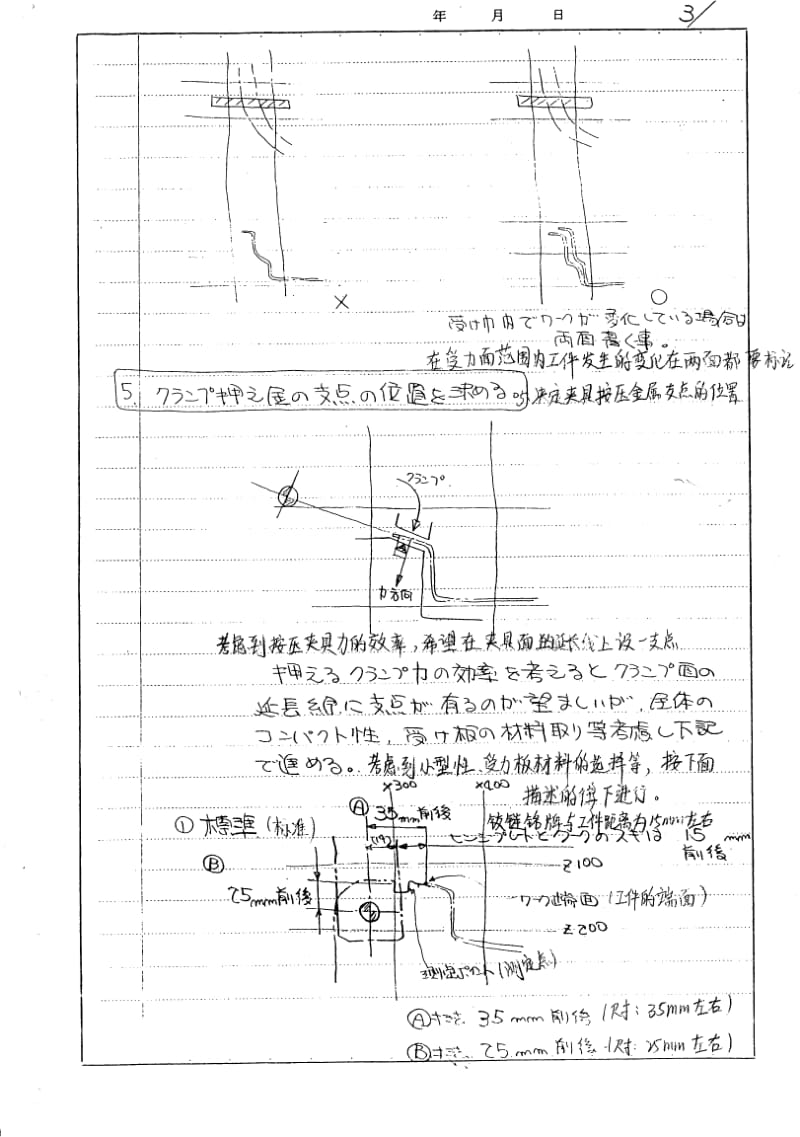 年 月 日
3/
×
○
受け巾内でワークが変化している場合は
両面書く事。
在受力面范围内工件发生的变化在两面都要标记
5. クランプ押え金の支点の位置を決める
决定夹具按压金属支点的位置
クランプ
力方向
考虑到按压夹具力的效率,希望在夹具面的延长线上设一支点
押えるクランプ力の効率を考えるとクランプ面の
延長線に支点が有るのが望ましいが、全体の
コンパクト性、受け板の材料取り等考慮し下記
で進める。考虑到小型性、受力板材料的选择等,按下面
描述的往下进行。
×300 ×400
① 標準 (标准)
Ⓐ 35mm前後
铰链铭牌与工件距离为15mm左右
ヒンジプレートとワークのスキは 15 mm
前後
(19)
Ⓑ
25mm前後
Z100
ワーク端面 (工件的端面)
Z200
測定ポイント(測定点)
Ⓐ寸法 35mm前後 (尺寸:35mm左右)
Ⓑ寸法 25mm前後 (尺寸:25mm左右)